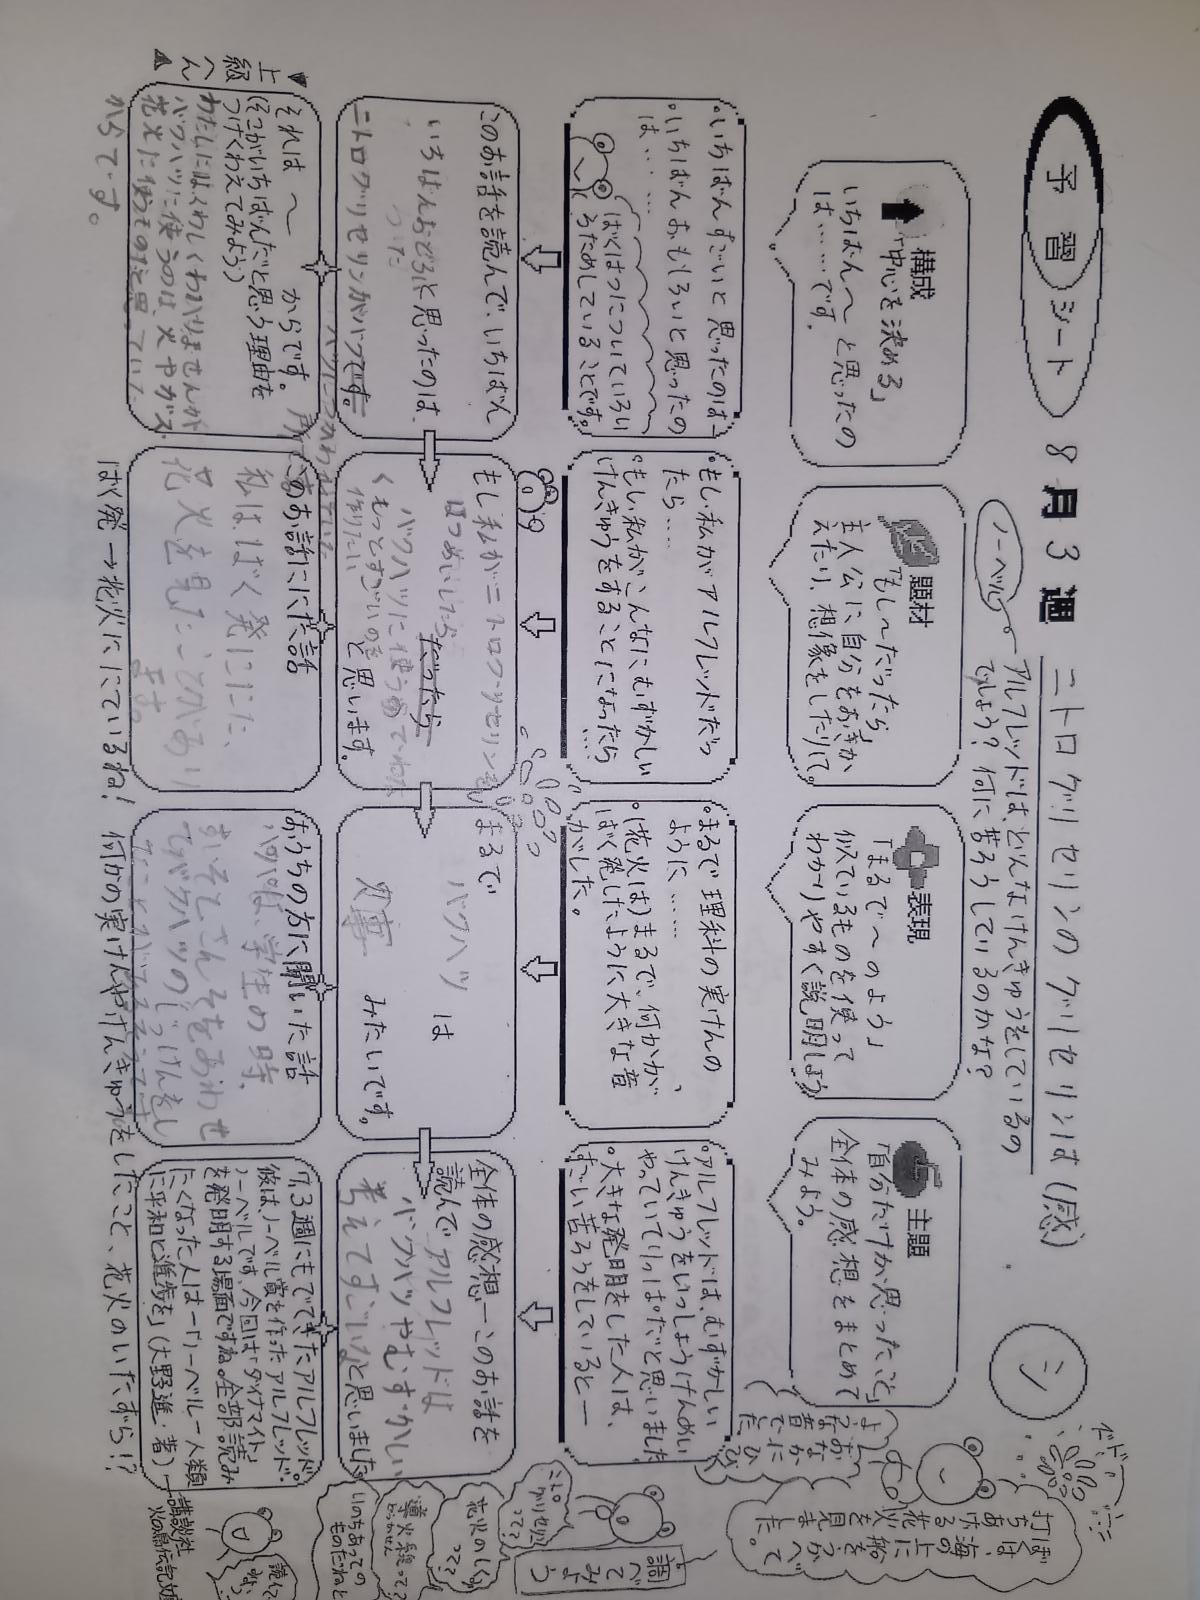 予習シート 8月3週 ニトログリセリンのグリセリンは(感)
シ
ノーベル
アルフレッドは、どんなけんきゅうをしているの
でしょう?何に苦ろうしているのかな?
構成
「中心を決める」
いちばん〜と思ったの
は……です。
題材
「もし〜だったら」
主人公に自分をおきか
えたり、想像をしたりして。
表現
「まるで〜のよう」
似ているものを使って
わかりやすく説明しよう
主題
「自分だけが思ったこと」
全体の感想をまとめて
みよう。
・いちばんすごいと思ったのは―
・いちばんおもしろいと思ったの
は……
ばくはつについていろい
ろためしていることです。
・もし私がアルフレッドだっ
たら…
・もし私がこんなにむずかしい
けんきゅうをすることになったら
…
・まるで理科の実けんの
ように……
・(花火は)まるで、何かが、
ばく発したように大きな音
がした。
・アルフレッドは、むずかしい
けんきゅうをいっしょうけんめい
やっていてりっぱだと思いました
・大きな発明をした人は、
すごい苦ろうをしていると―
このお話を読んで、いちばん
いちばんおどろいと思ったのは、
ニトログリセリンがバクです。
もし私がニトログリセリンを
はつめいしたら
だったら
バクハツに使う
くもっとすごいのを
作りたい
と思います。
まるで
バクハツ は
火事 みたいです。
全体の感想―このお話を
読んでアルフレッドは
バクハツやむずかしい
考えてすごいなと思いました
▼上級へん▲
それは 〜 からです。
(そこがいちばんだと思う理由を
つけくわえてみよう)
わたしにはくわしくわかりませんが
バクハツに使うのは、火やガス
花火に使うものだと思っていた
からです。
このお話ににた話
私はばく発ににた、
花火を見たことがあり
ます。
おうちの方に聞いた話
パパは、学生の時、
すいそとさんそをあわせ
てバクハツのじっけんをし
たことがあるそうです
7.3週にもでてきたアルフレッド。
彼は、ノーベル賞を作ったアルフレッド・
ノーベルです。今回は「ダイナマイト」
を発明する場面ですね。全部読み
たくなった人は―「ノーベル―人類
に平和と進歩を」(大野進・著)―
講談社
火の鳥伝記文庫
ばく発→花火ににているね! 何かの実けんやけんきゅうをしたこと、花火のいたずら!?
ドドーン
ぼくは、
海の上に
船をうかべて
打ちあげる
花火を見ま
した。
調べてみよう
ニトログリセリンって??
花火のしくみって??
導火線って?
どうかせん
いのちあっての
ものだねと